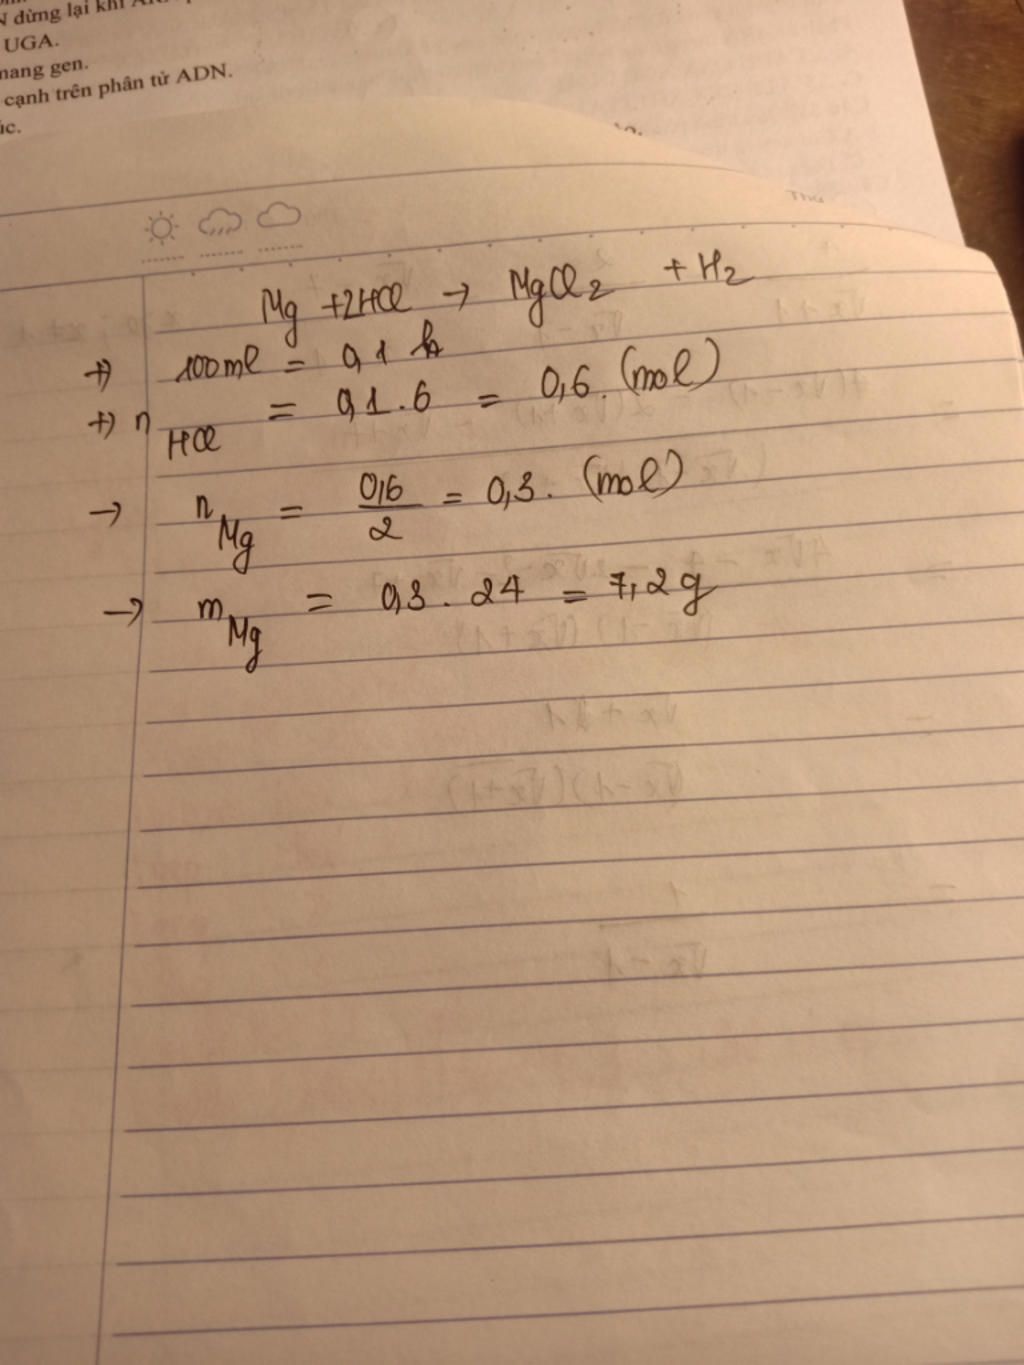 N dừng lại khi
UGA.
mang gen.
cạnh trên phân tử ADN.
úc.
Thứ
Mg + 2HCl → MgCl2 + H2
+) 100ml = 0,1 l
+) nHCl = 0,1 . 6 = 0,6. (mol)
→ nMg = 0,6/2 = 0,3. (mol)
→ mMg = 0,3 . 24 = 7,2g